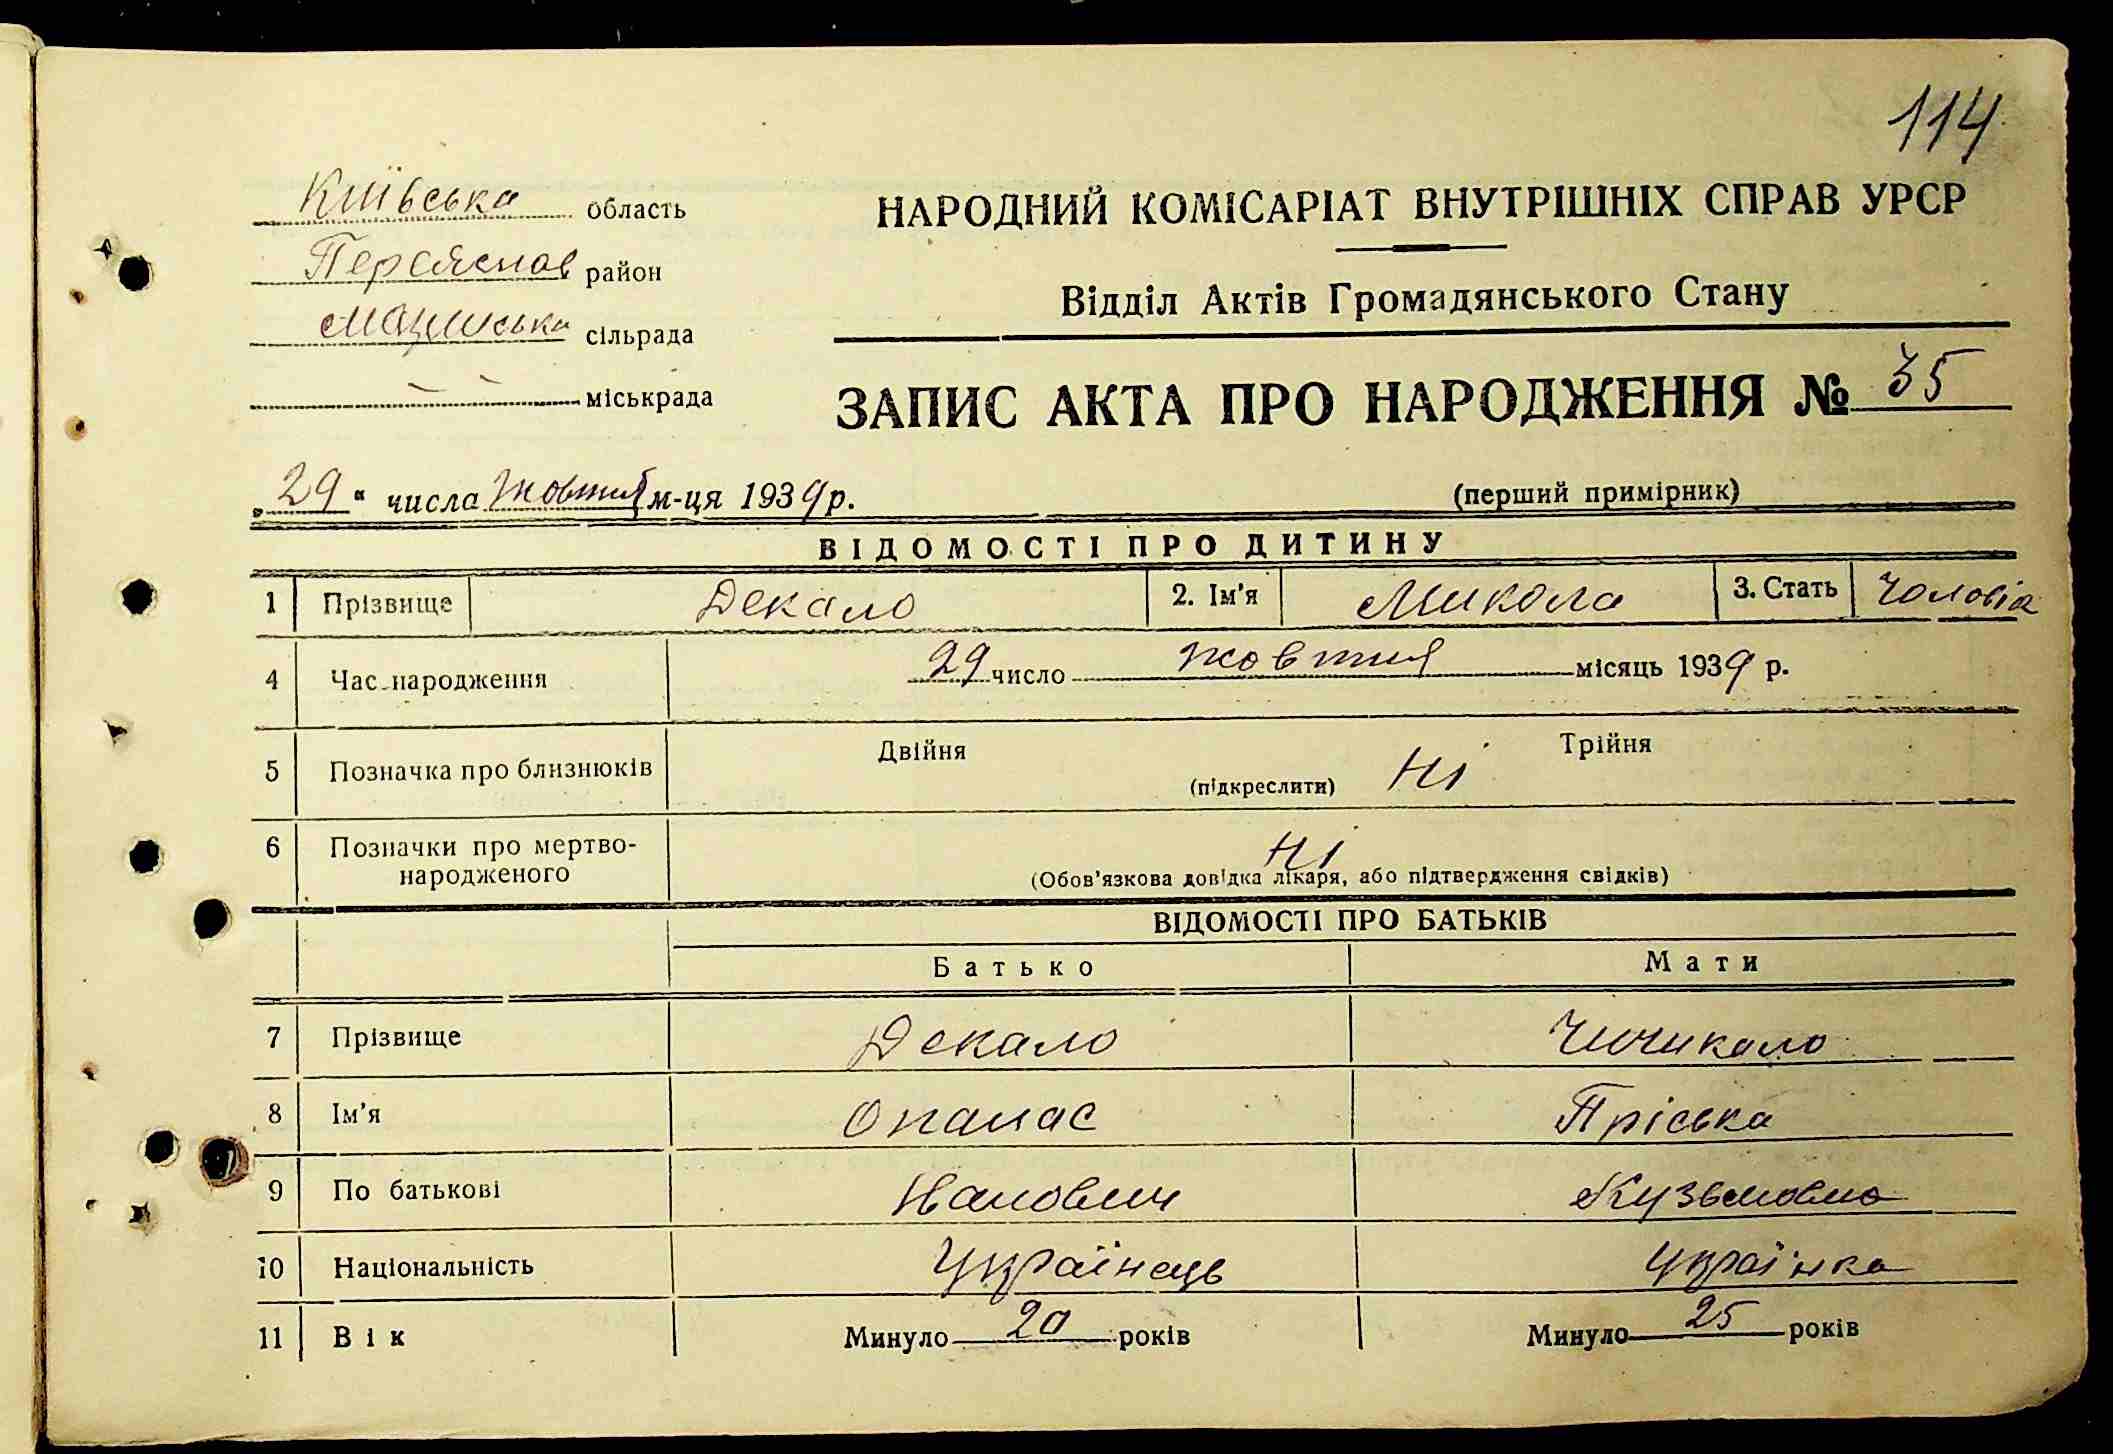 114
Київська область
НАРОДНИЙ КОМІСАРІАТ ВНУТРІШНІХ СПРАВ УРСР
Переяслов район
Відділ Актів Громадянського Стану
сільрада
міськрада
ЗАПИС АКТА ПРО НАРОДЖЕННЯ № 35
„29“ числа жовтня м-ця 1939 р.
(перший примірник)
ВІДОМОСТІ ПРО ДИТИНУ
1 Прізвище Декало 2. Ім'я Микола 3. Стать
4 Час народження 29 число жовтня місяць 1939 р.
5 Позначка про близнюків Двійня (підкреслити) Ні Трійня
6 Позначки про мертво-
народженого Ні
(Обов'язкова довідка лікаря, або підтвердження свідків)
ВІДОМОСТІ ПРО БАТЬКІВ
Батько Мати
7 Прізвище Декало Чичикало
8 Ім'я Опанас Пріська
9 По батькові Іванович Кузьмовна
10 Національність Українець Українка
11 Вік Минуло 20 років Минуло 25 років